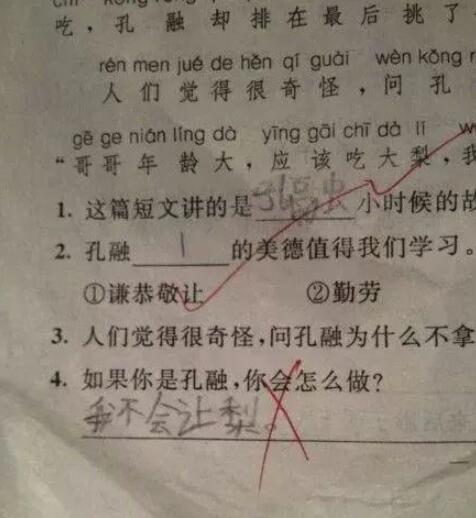 吃,孔 融 却 排 在 最 后 挑 了
rén men jué de hěn qí guài wèn kǒng r
人 们 觉 得 很 奇 怪,问 孔
gē ge nián líng dà yīng gāi chī dà lí w
“哥 哥 年 龄 大,应 该 吃 大 梨,我
1. 这篇短文讲的是 孔融 小时候的故
2. 孔融 1 的美德值得我们学习。
①谦恭敬让 ②勤劳
3. 人们觉得很奇怪,问孔融为什么不拿
4. 如果你是孔融,你会怎么做?
我不会让梨。